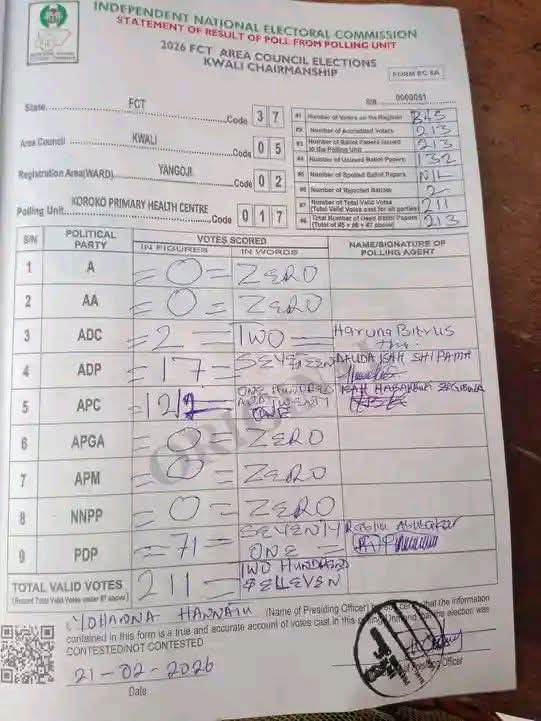 INDEPENDENT NATIONAL ELECTORAL COMMISSION
STATEMENT OF RESULT OF POLL FROM POLLING UNIT
2026 FCT AREA COUNCIL ELECTIONS
KWALI CHAIRMANSHIP
FORM EC 8A
S/N 0000051
State FCT Code 3 7
Area Council KWALI Code 0 5
Registration Area(WARD) YANGOJI Code 0 2
Polling Unit KOROKO PRIMARY HEALTH CENTRE Code 0 1 7
#1 Number of Voters on the Register 345
#2 Number of Accredited Voters 213
#3 Number of Ballot Papers Issued to the Polling Unit 213
#4 Number of Unused Ballot Papers 132
#5 Number of Spoiled Ballot Papers NIL
#6 Number of Rejected Ballots 2
#7 Number of Total Valid Votes (Total Valid Votes cast for all parties) 211
#8 Total Number of Used Ballot Papers (Total of #5 + #6 + #7 above) 213
S/N POLITICAL PARTY VOTES SCORED NAME/SIGNATURE OF POLLING AGENT
IN FIGURES IN WORDS
1 A =0= ZERO
2 AA =0= ZERO
3 ADC =2= TWO= Haruna Bitrus
4 ADP =17= SEVENTEEN DAUDA ISAH SHIPAMA
5 APC =121= ONE HUNDRED AND TWENTY ONE ISAH
6 APGA =0= ZERO
7 APM =0= ZERO
8 NNPP =0= ZERO
9 PDP =71= SEVENTY ONE= Rabiu Abubakar
TOTAL VALID VOTES 211= TWO HUNDRED & ELLEVEN
(Record Total Valid Votes under #7 above)
I, YOHANNA HANNATU (Name of Presiding Officer) hereby certify that the information
contained in this form is a true and accurate account of votes cast in this Polling Unit and that the election was
CONTESTED/NOT CONTESTED
21-02-2026
Date
Signature of Presiding Officer
ORIGINAL